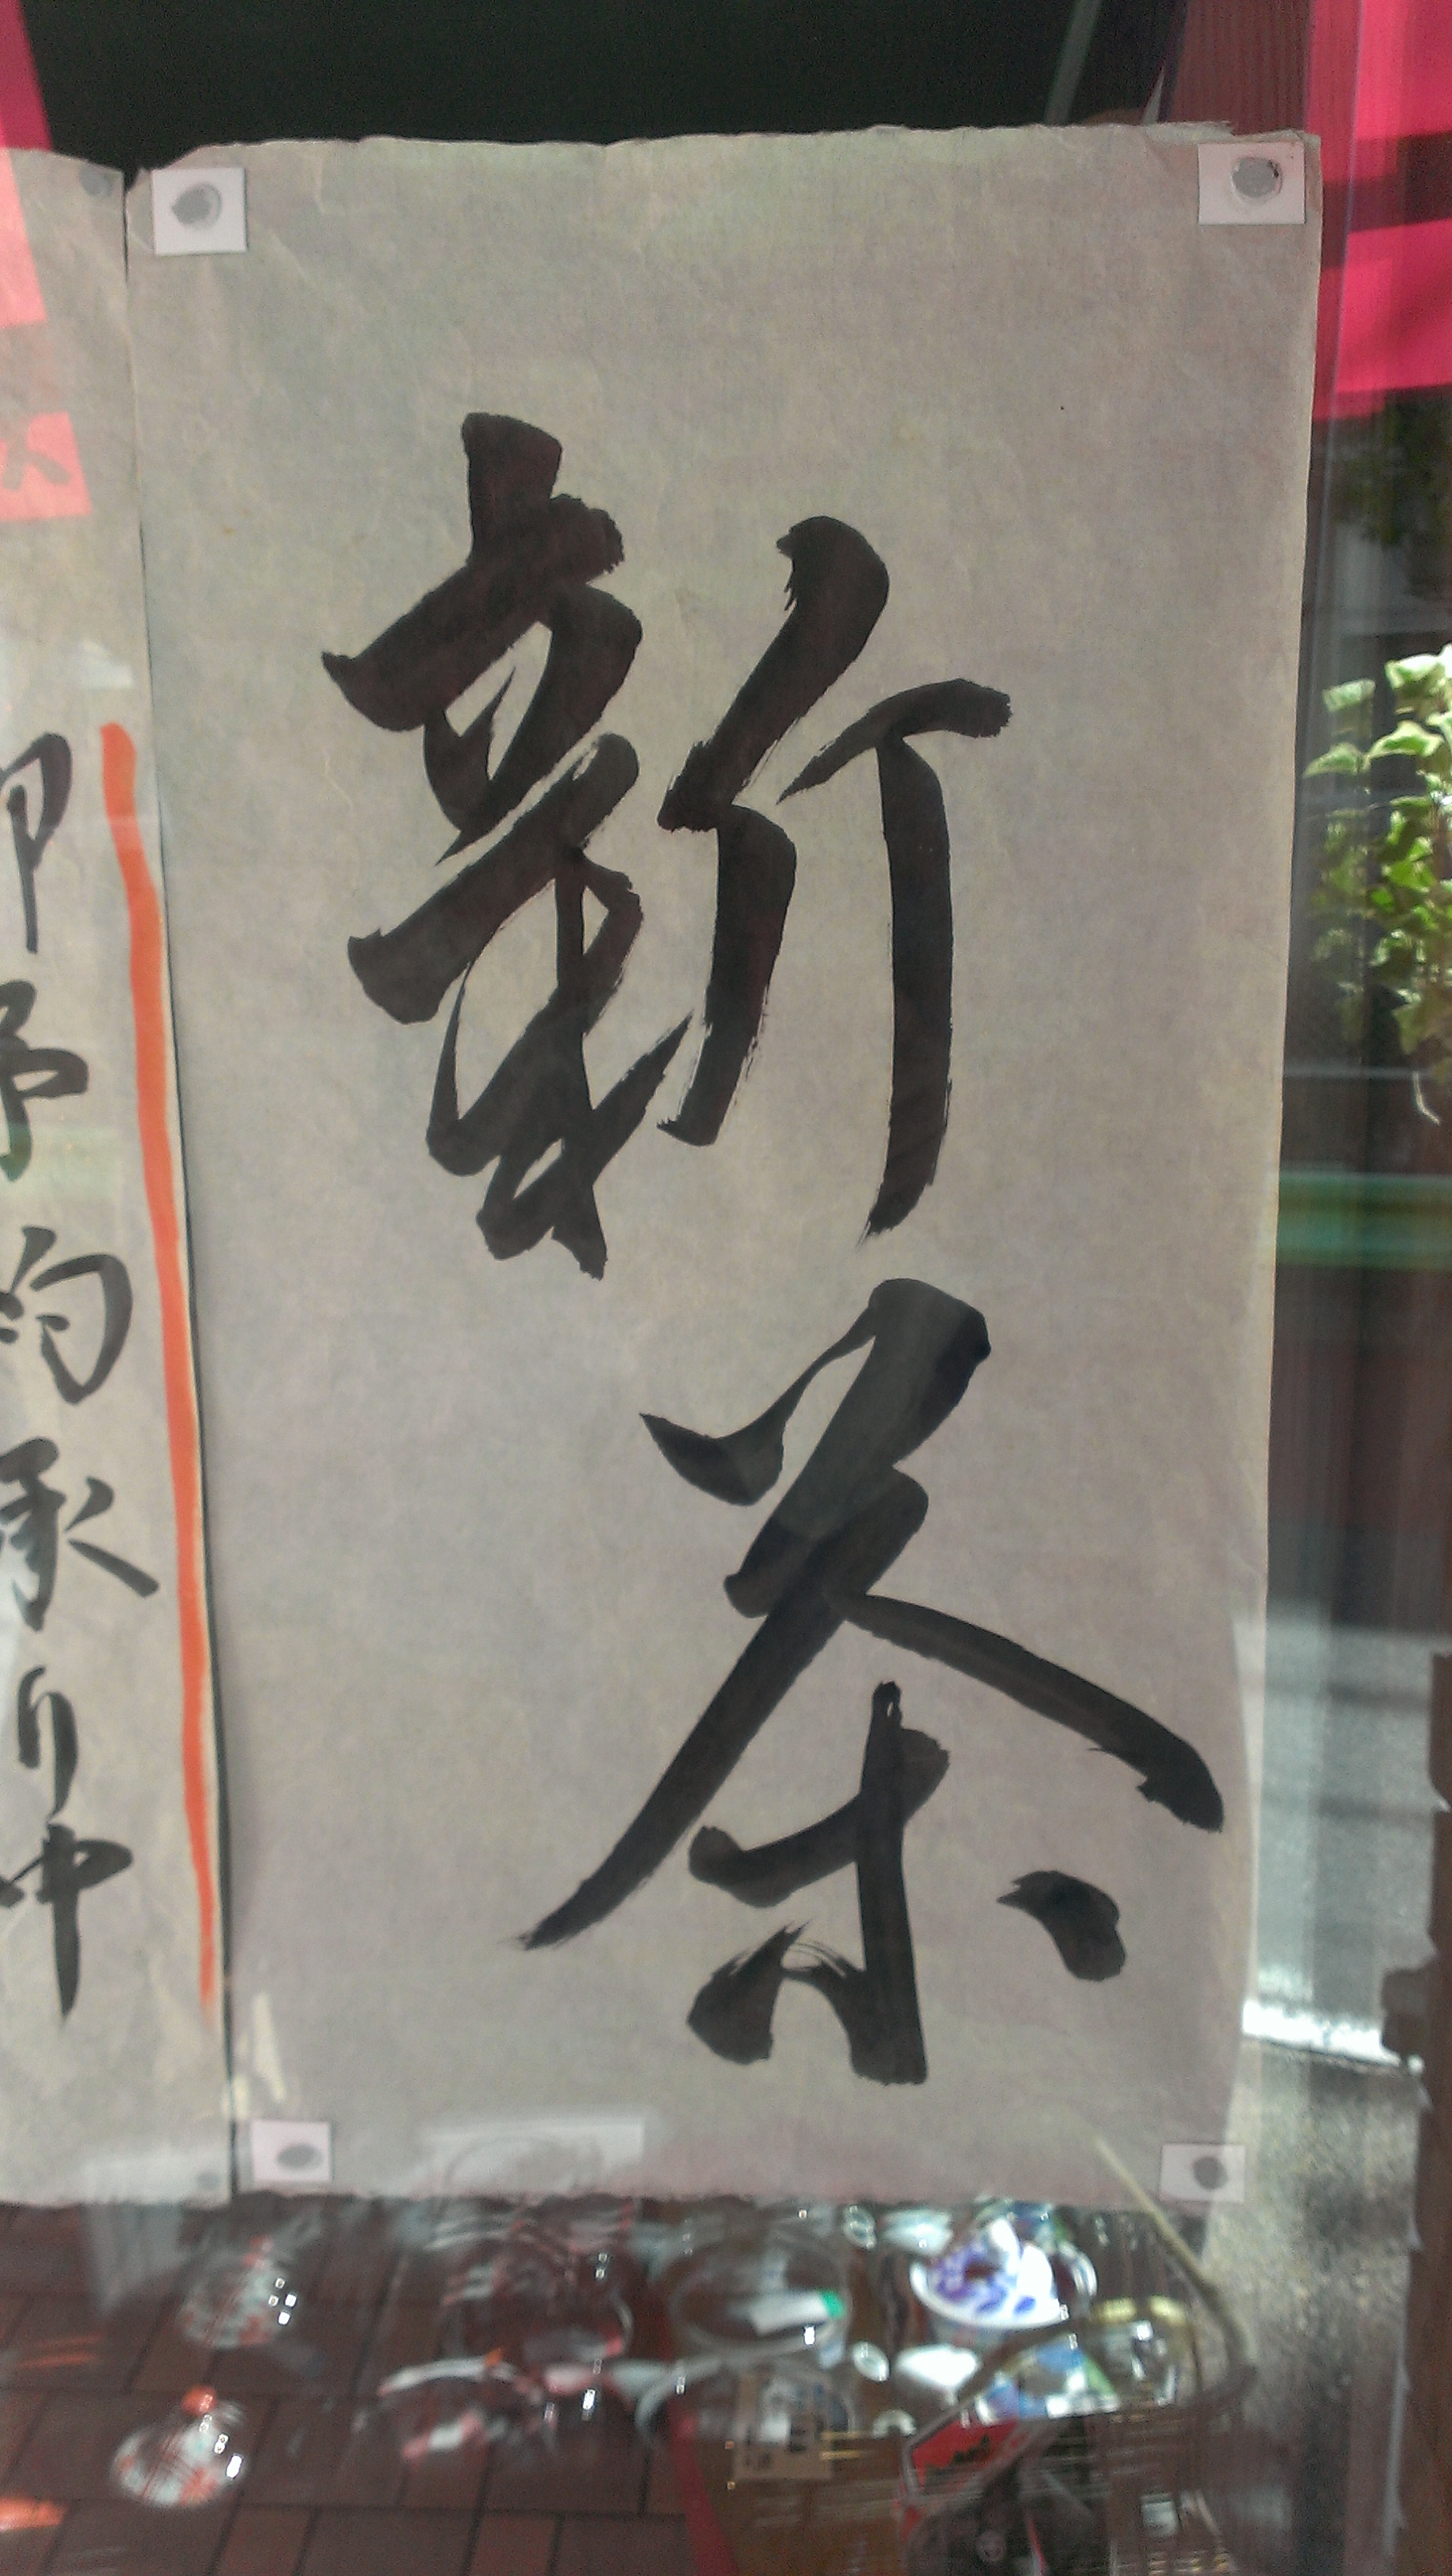 新茶
御予約承り中